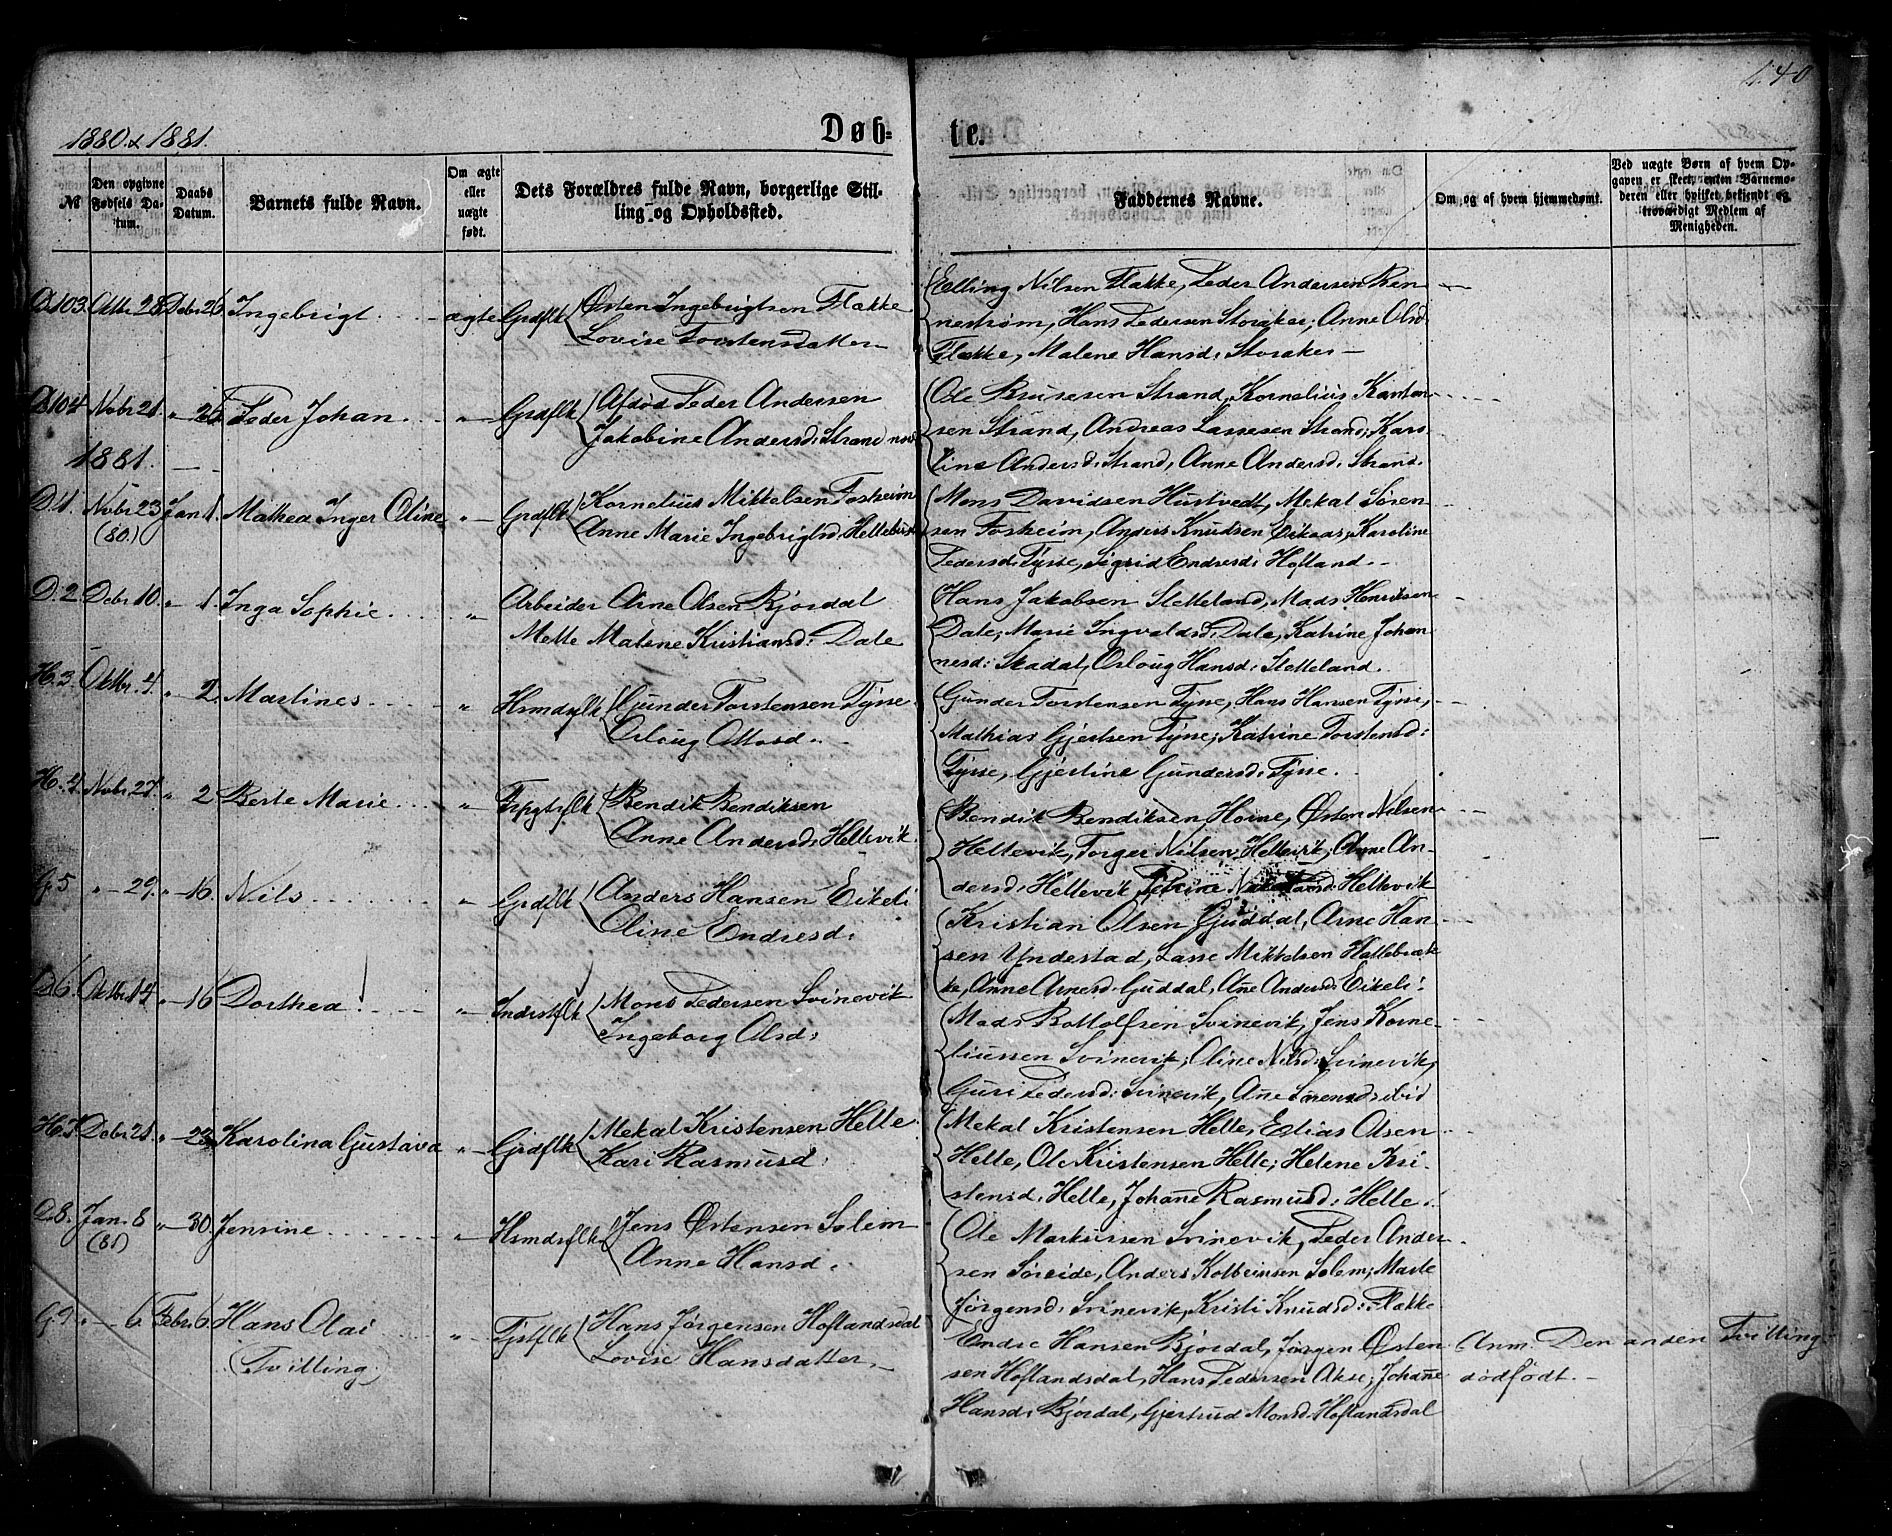 140
1880 & 1881.
Døb-
te.
№
Den opgivne Fødsels Datum.
Daabs Datum.
Barnets fulde Navn.
Om ægte eller uægte født.
Dets Forældres fulde Navn, borgerlige Stilling og Opholdssted.
Faddernes Navne.
Om og af hvem hjemmedøbt.
Ved uægte Børn af hvem Opgaven er skeet, enten Barnemoderen eller hvilket bekjendt og troværdigt Medlem af Menigheden.
D.103. Oktbr 28. Debr 26. Ingebrigt. ægte Grdflk Østen Ingebrigtsen Flække
Lovise Torstensdatter
Elling Nilsen Flække, Peder Andersen Ren-
nestrøm, Hans Pedersen Storaker, Anne Olsd.
Flække, Malene Hansd: Storaker
D.104. Novbr 21. " 26. Peder Johan. " Grdflk Afdød Peder Andersen
Jakobine Andersd: Strand
Ole Brusesen Strand, Kornelius
sen Strand, Andreas Lassesen Strand, Karo-
line Andersd: Strand, Anne Andersd: Strand.
1881.
D.1. Novbr 23 (80.) Jan 1. Mathea Inger Oline " Grdflk Kornelius Mikkelsen Fosheim
Anne Marie Ingebrigtsd: Hellebust
Mons Davidsen Hustvedt, Mekal Søren-
sen Fosheim, Anders Knudsen Eikaas, Karoline
Pedersd: Tysse, Sigrid Endresd: Hofland.
D.2. Debr 10. " 1. Inga Sophie. " Arbeider Arne Olsen Bjordal
Mette Malene Kristiansd: Dale
Hans Jakobsen Sletteland, Mads Henriksen
Dale, Marie Ingvaldsd: Dale, Katrine Johan-
nesd: Skadal, Oslaug Hansd: Sletteland.
H.3. Oktbr. 4. " 2. Martines. " Hsmdsflk Gunder Torstensen Tysse
Oslaug Ottosd.
Gunder Torstensen Tysse, Hans Hansen Tysse,
Mathias Gjertsen Tysse; Katrine Torstensd:
Tysse, Gjertine Gundersd: Tysse.
H.4. Novbr 27. " 2 Berte Marie. " Frpgtrflk Bendik Bendiksen
Anne Andersd: Hellevik.
Bendik Bendiksen Horne, Østen Nilsen
Hellevik, Torger Nilsen Hellevik; Anne An-
dersd: Hellevik, Hellevik
G.5. " 29. " 16. Nils. " Grdflk Anders Hansen Eikeli
Oline Endresd:
Kristian Olsen Guddal, Arne Han-
sen Yndestad, Lasse Mikkelsen Hallebræk-
ke, Anne Arnesd: Guddal, Ane Andersd: Eikeli.
D.6. Oktbr. 14. " 16 Dorthea! " Indrstflk Mons Pedersen Svinevik
Ingeborg Olsd:
Mads Bottolfsen Svinevik, Jens Korne-
liussen Svinevik; Oline Nilsd: Svinevik,
Guri Pedersd: Svinevik, Ane Sørensd: ibid
H.7. Debr 21. " 23. Karolina Gustava " Grdflk Mekal Kristensen Helle
Kari Rasmusd:
Mekal Kristensen Helle, Elias Olsen
Helle, Ole Kristensen Helle; Helene Kri-
stensd: Helle, Johanne Rasmusd: Helle.
D.8. Jan. 8 (81) " 30. Jensine. " Hsmdsflk Jens Østensen Solem
Anne Hansd.
Ole Markussen Svinevik, Peder Ander-
sen Søreide, Anders Kolbeinsen Solem; Marte
Jørgensd: Svinevik, Kristi Knudsd: Flække
G.9. " 6 Febr. 6. Hans Olai " Tjstflk Hans Jørgensen Hoflandsdal
(Tvilling)
Lovise Hansdatter
Endre Hansen Bjordal, Jørgen Østen- Anm. Den anden Tvilling
sen Hoflandsdal, Hans Pedersen Akse; Johanne dødfødt.
Hansd: Bjordal, Gjertrud Monsd: Hoflandsdal